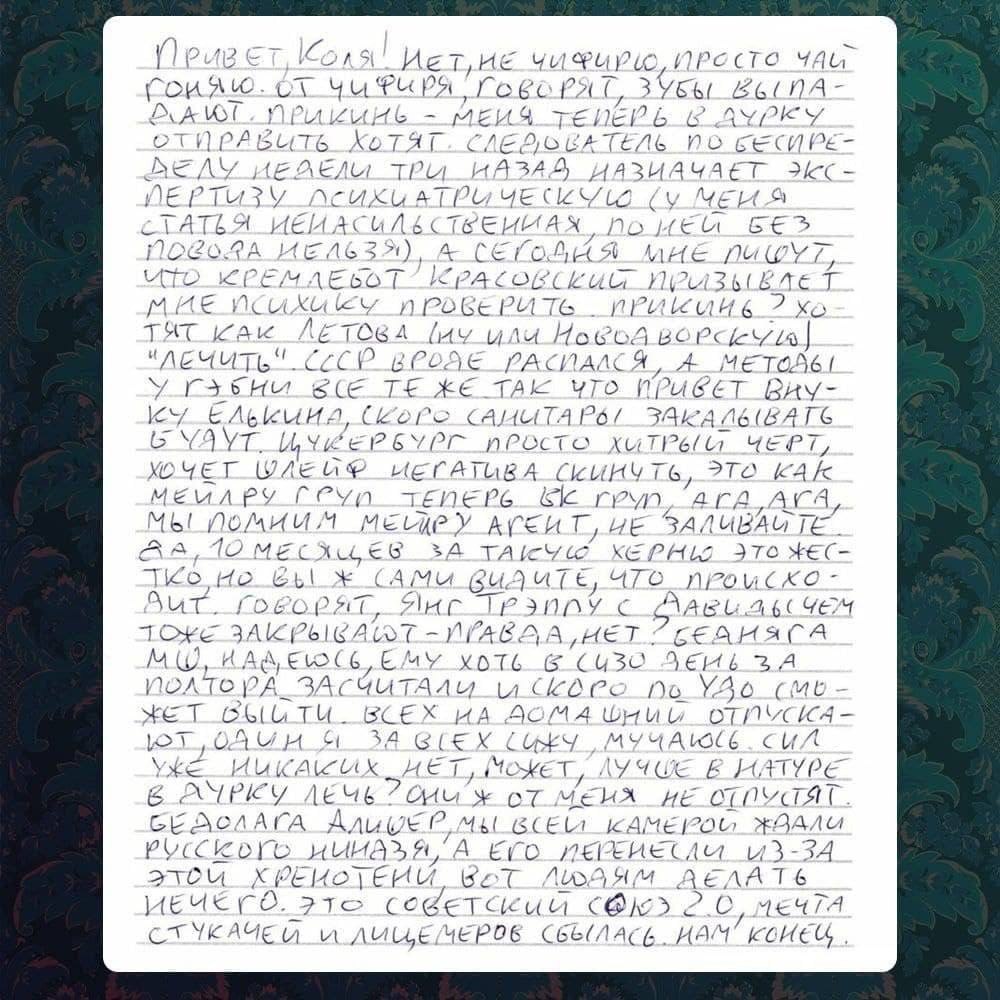 Привет, Коля! Нет, не чифирю, просто чай
гоняю. От чифиря, говорят, зубы выпа-
дают. Прикинь – меня теперь в дурку
отправить хотят. Следователь по беспре-
делу недели три назад назначает экс-
пертизу психиатрическую (у меня
статья ненасильственная, по ней без
повода нельзя), а сегодня мне пишут,
что кремлебот Красовский призывает
мне психику проверить. Прикинь? Хо-
тят как Летова (ну или Новодворскую)
"лечить". СССР вроде распался, а методы
у гэбни все те же. Так что привет вну-
ку Ёлькина, скоро санитары закалывать
будут. Цукербург просто хитрый черт,
хочет шлейф негатива скинуть, это как
мейлру груп теперь вк груп, ага, ага,
мы помним мейлру агент, не заливайте.
Да, 10 месяцев за такую херню это жес-
тко, но вы ж сами видите, что происхо-
дит. Говорят, Янг Трэппу с Давидычем
тоже закрывают – правда, нет? Бедняга
МШ, надеюсь, ему хоть в сизо день за
полтора засчитали и скоро по УДО смо-
жет выйти. Всех на домашний отпуска-
ют, один я за всех сижу, мучаюсь. Сил
уже никаких нет, может, лучше в натуре
в дурку лечь? Они ж от меня не отпустят.
Бедолага Алишер, мы всей камерой ждали
русского ниндзя, а его перенесли из-за
этой хренотени, вот людям делать
нечего. Это советский союз 2.0, мечта
стукачей и лицемеров сбылась. Нам конец.